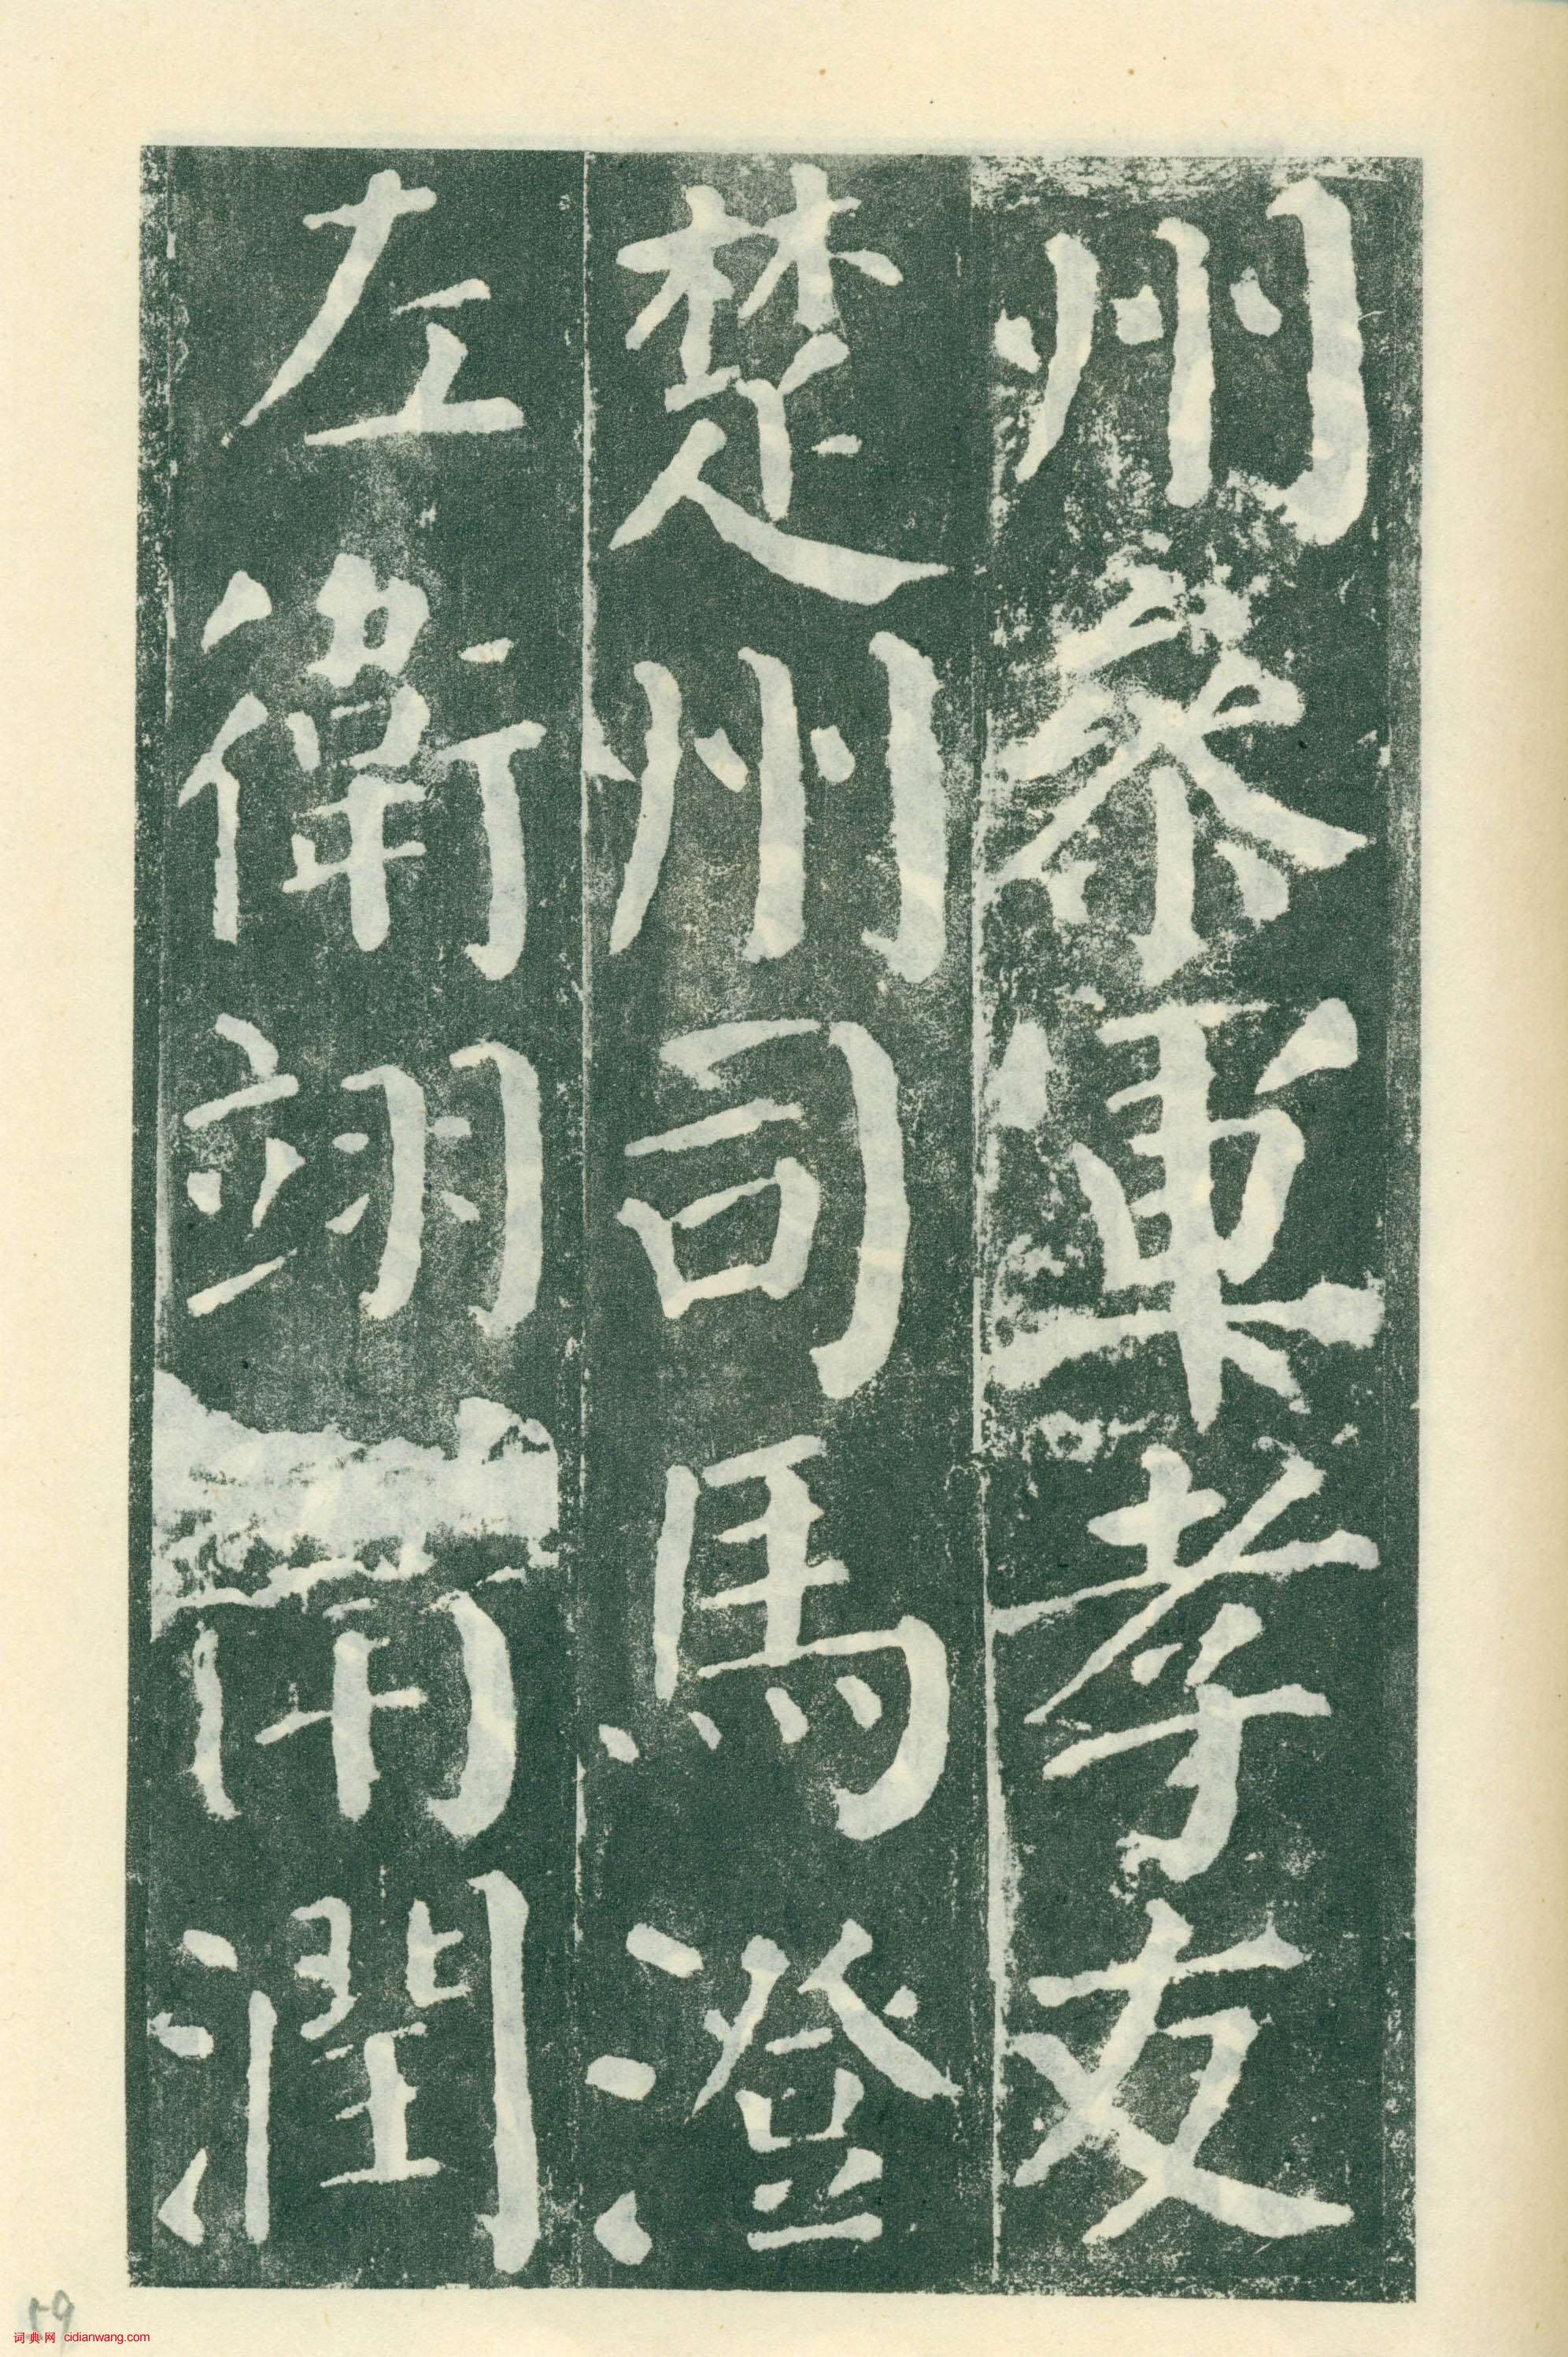 州參軍孝友
楚州司馬澄
左衛翊衛潤
59
词典网 cidianwang.com